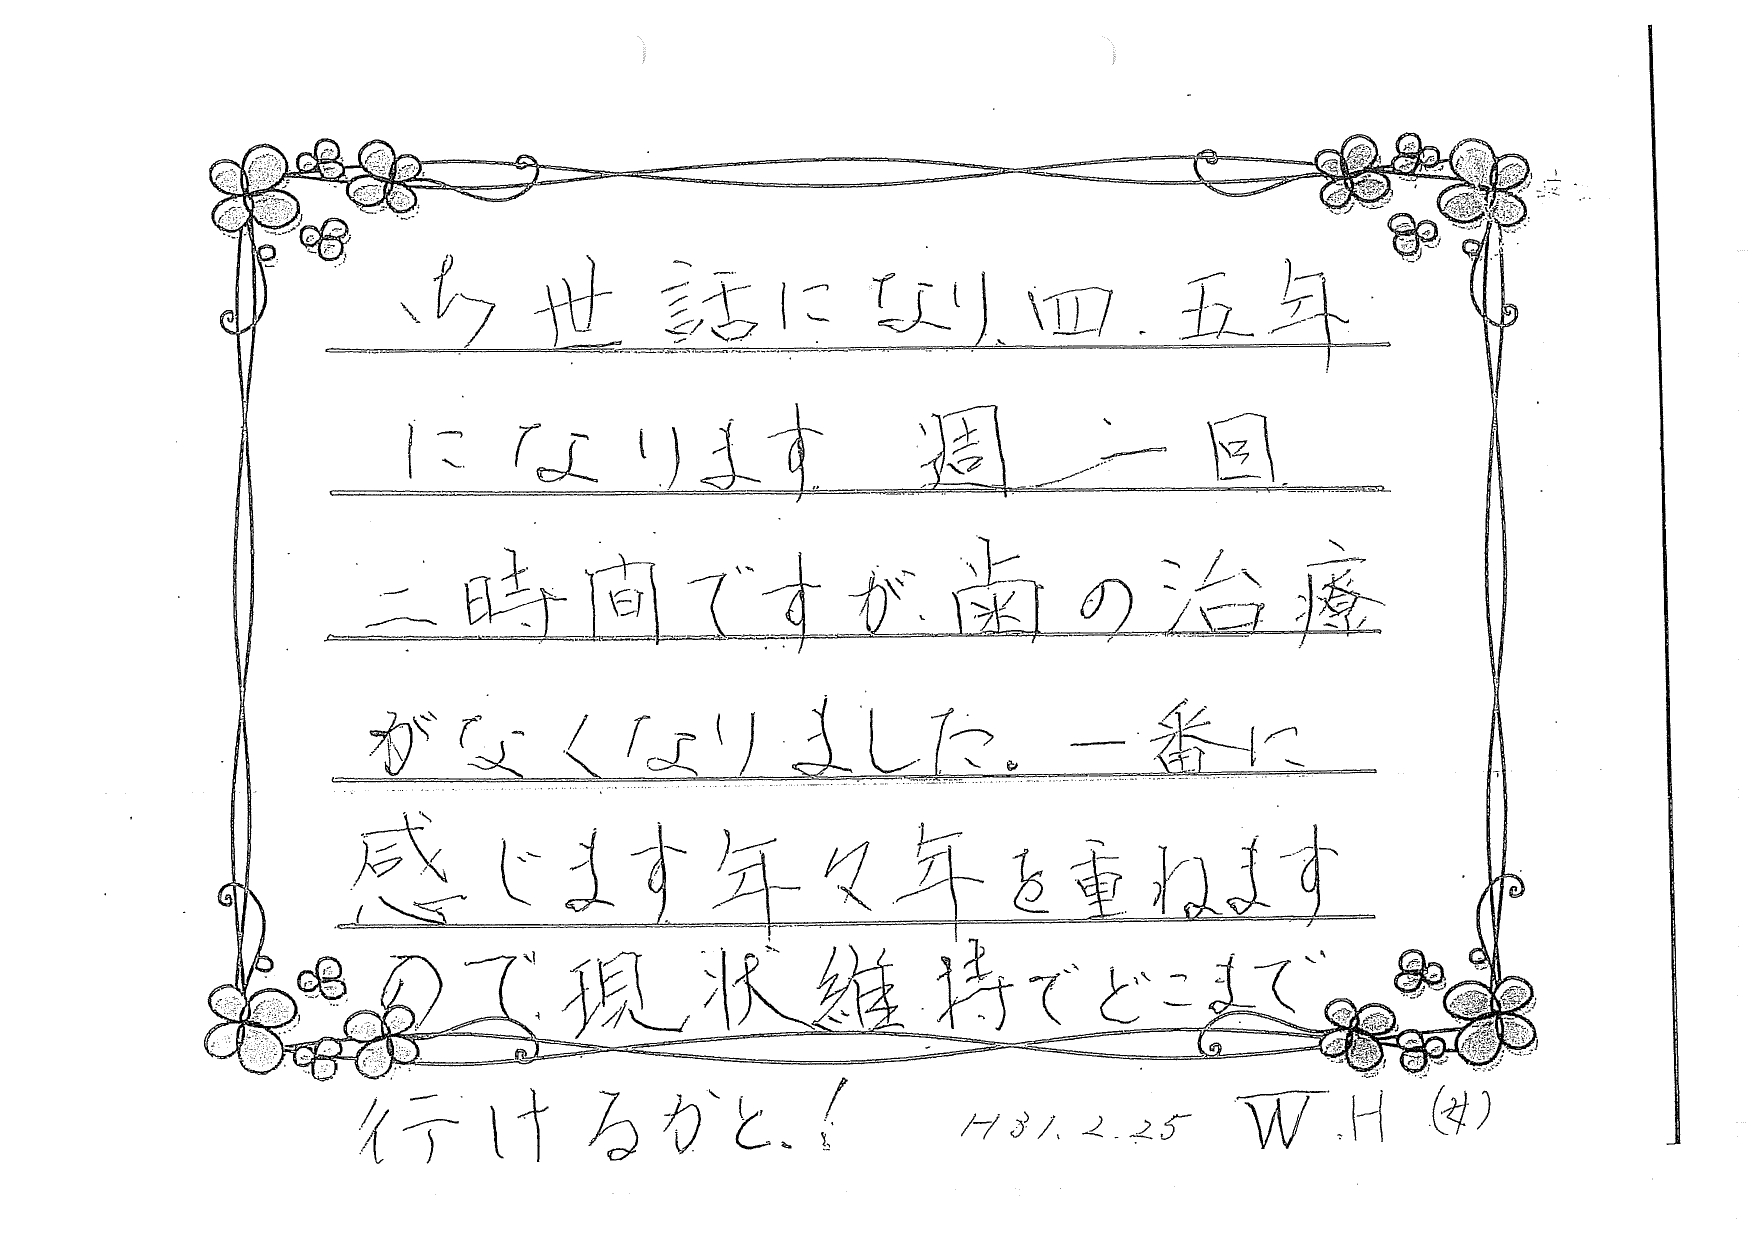 お世話になり、四、五年
になります 週一回
二時間ですが、歯の治療
がなくなりました。一番に
感じます年々年を重ねます
ので、現状維持でどこまで
行けるかと、!
H31.2.25 W.H (女)